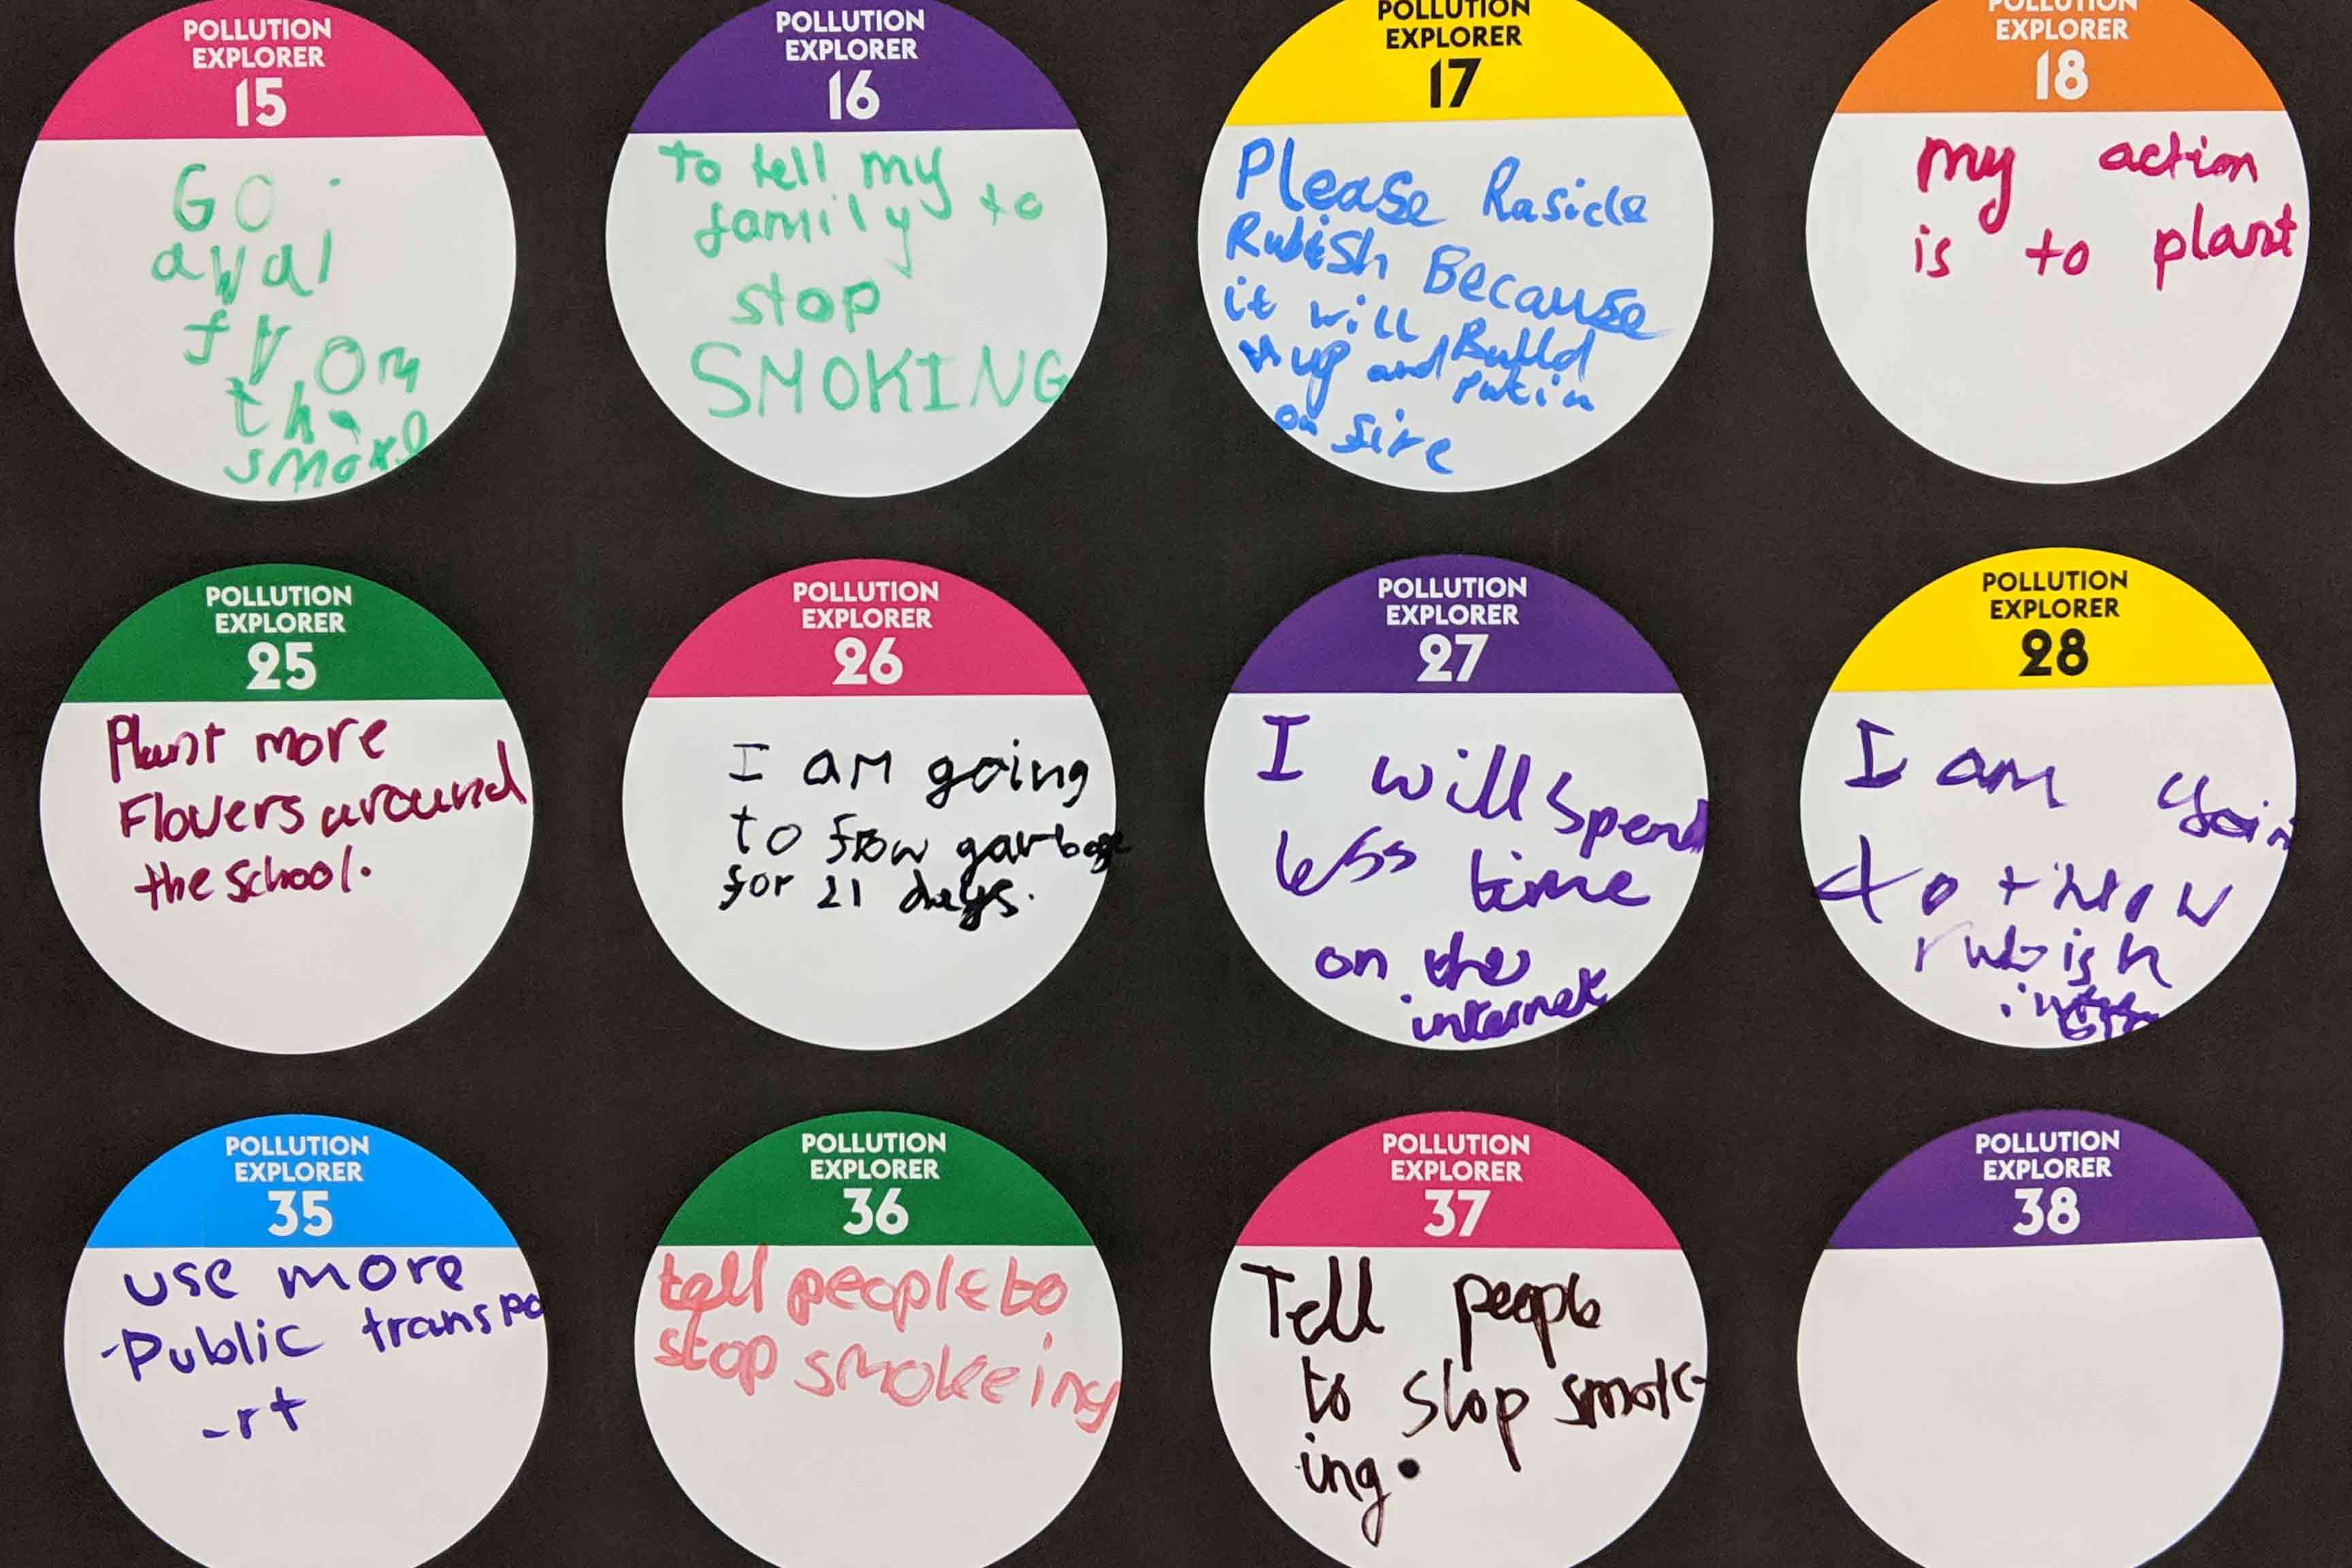 POLLUTION
EXPLORER
15
GO
awal
from
the
smoke
POLLUTION
EXPLORER
16
to tell my
family to
stop
SMOKING
POLLUTION
EXPLORER
17
Please Rasicle
Rubish Because
it will Build
up and Putin
on fire
POLLUTION
EXPLORER
18
my action
is to plant
POLLUTION
EXPLORER
25
Plant more
Flowers around
the school.
POLLUTION
EXPLORER
26
I am going
to frow garbage
for 21 days.
POLLUTION
EXPLORER
27
I will spend
less time
on the
internet
POLLUTION
EXPLORER
28
I am goin
to throw
rubish
POLLUTION
EXPLORER
35
use more
-Public transpo
-rt
POLLUTION
EXPLORER
36
tell people to
stop smokeing
POLLUTION
EXPLORER
37
Tell people
to stop smok-
ing.
POLLUTION
EXPLORER
38